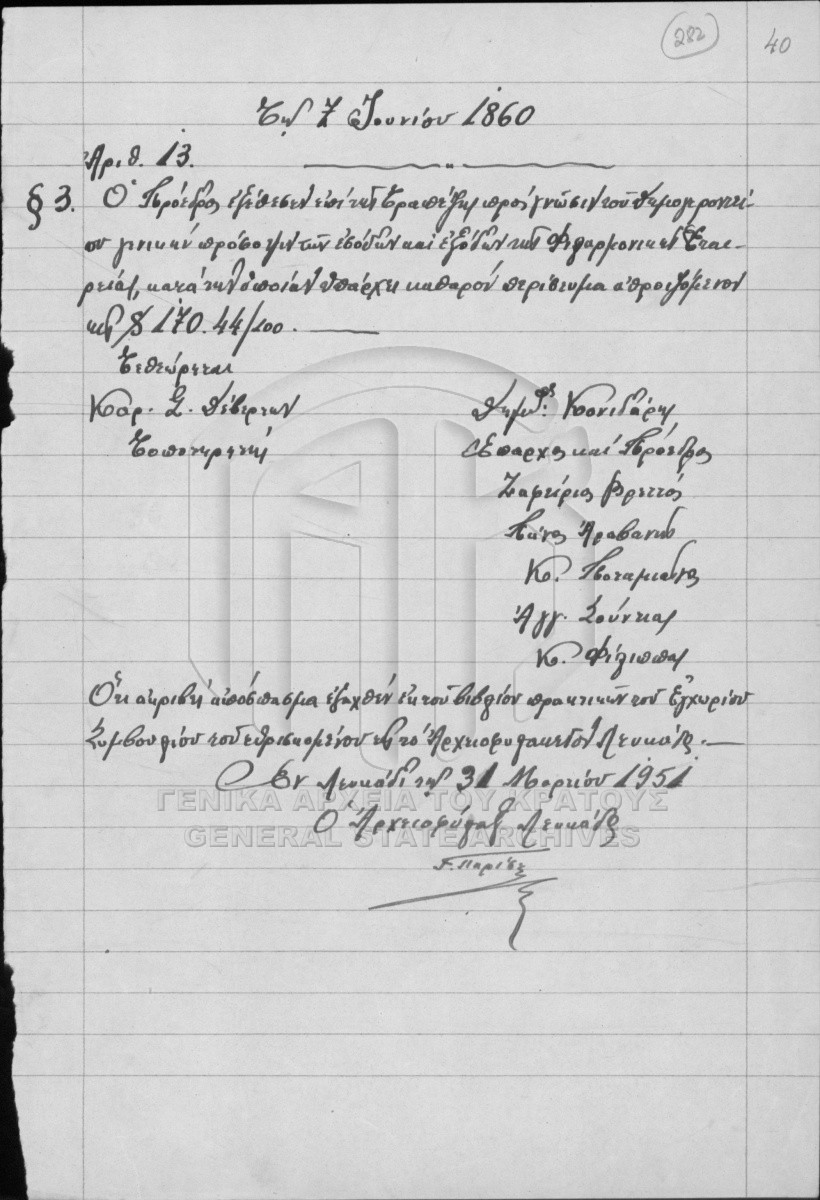 282
40
Τῇ 7 Ἰουνίου 1860
Ἀριθ. 13.
§ 3. Ὁ Πρόεδρος ἐξέθεσεν ἐπί τῆς τραπέζης πρός γνῶσιν τοῦ Δημογεροντεί-
ου γενικήν πρόσοψιν τῶν ἐσόδων καί ἐξόδων τῆς Φιλαρμονικῆς Ἑται-
ρείας, κατά τήν ὁποίαν ὑπάρχει καθαρόν περίσευμα ἀθροιζόμενον
εἰς $ 170.44/100.
Ἐθεώρηται
Κάρ. Σ. Δέβερτων
Τοποτηρητής
Δημ. Κονιδάρης
Ἔπαρχος καί Πρόεδρος
Ζαφείριος Βρεττός
Πάνος Ἀραβανῆς
Κ. Ποταμιάνος
Ἀγγ. Σούνδιας
Κ. Φίλιππας
Ὅτι ἀκριβές ἀπόσπασμα ἐξαχθέν ἐκ τοῦ βιβλίου πρακτικῶν τοῦ Ἐγχωρίου
Συμβουλίου τοῦ εὑρισκομένου εἰς τό Ἀρχειοφυλακεῖον Λευκάδος.
Ἐν Λευκάδι τῇ 31 Μαρτίου 1951
Ὁ Ἀρχειοφύλαξ Λευκάδος
ΓΕΝΙΚΑ ΑΡΧΕΙΑ ΤΟΥ ΚΡΑΤΟΥΣ
GENERAL STATE ARCHIVES